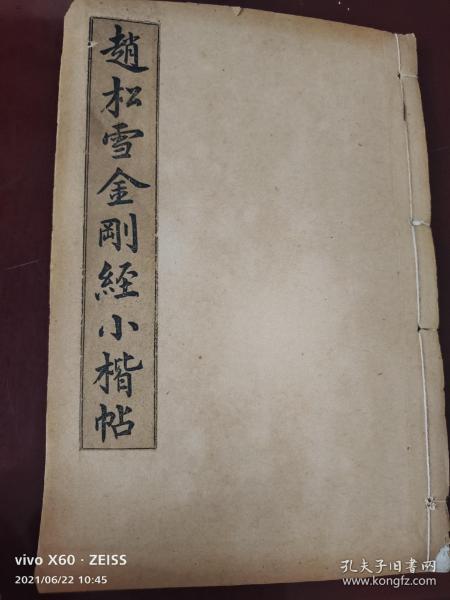 趙松雪金剛經小楷帖
vivo X60 · ZEISS
2021/06/22 10:45
孔夫子旧书网
www.kongfz.com